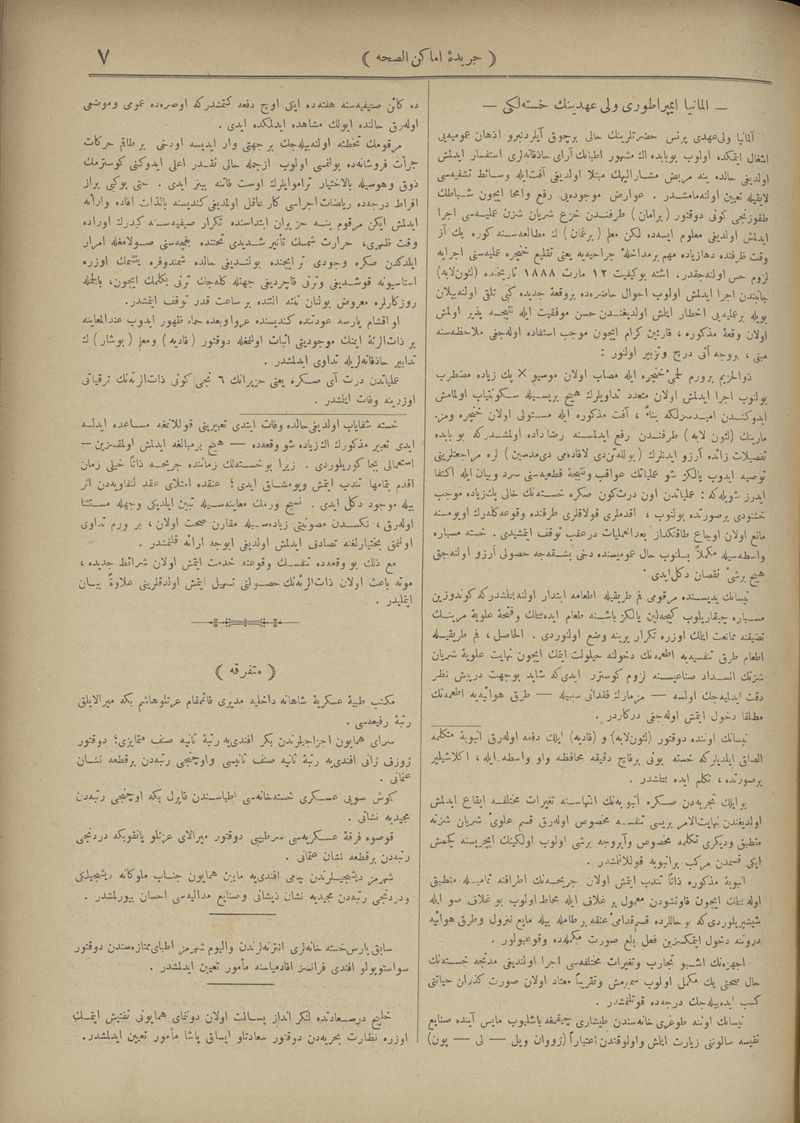 ﴿ جريدۀ اماكن الصحه ﴾
٧
— المانيا ايمپراطورى ولى عهدينك خسته‌لكى —
آلمانيا ولى‌عهدى پرنس حضرتلرينك حالى برچوق آيلردنبرو اذهان عموميه‌يى
اشغال ايتمكده اولوب بوبابده اك مشهور اطبانك آراى حاذقانه‌لرى استفسار ايدلمش
اولديغى حالده ينه مريض مشاراليهك مبتلا اولديغى آفت‌ايله وسائط تشفيه‌سى
لايقيله تعيين اولنه‌مامشدر . عوارض موجوده‌يى رفع وامحا ايچون شباطك
طقوزنجى كونى دوقتور (برامان) طرفندن خزع شريان شزن عمليه‌سى اجرا
ايدلمش اولديغى معلوم ايسه‌ده لكن معلم (برغمان) ك مطالعه‌سنه كوره پك آز
وقت ظرفنده دهازياده مهم برمداخلۀ جراحيه‌يه يعنى تقليع خنجره عمليه‌سنى اجرايه
لزوم حس اولنه‌جقدر . اشته بوكيفيت ١٢ مارت ١٨٨٨ تاريخنده (لئون‌لابه)
جانبندن اجرا ايدلمش اولوب احوال حاضره‌ده بروقعۀ جديده كبى تلقى اولنه‌بيلان
بويله برعمليه‌يى اخطار ايتمش اولديغندن حسن موفقيت ايله نتيجه پذير اولمش
اولان وقعۀ مذكوره ، قارئين كرام ايچون موجب استفاده اوله‌جغى ملاحظه‌سنه
مبنى ، بروجه آتى درج وتزبير اولنور :
ذوالحزيم برورم لحمىٔ خنجره ايله مصاب اولان موسيو × پك زياده مضطرب
بولنوب اجرا ايدلمش اولان متعدد تداويلرك هيچ بريسيله سكونتياب اولمامش
ايدوكندن اميدسزلكه بناءً ، آفت مذكوره ايله مستولى اولان خنجره ومز-
مارينك (لئون لابه) طرفندن رفع ايدلمسنه رضاداده اولمشدركه بو بابده
تفصيلات زائده آرزو ايدنلرك (بوله‌تن‌دى لاقاده‌مى دى‌مدسين) لره مراجعتلرينى
توصيه ايدوب يالكز شو عملياتك عواقب ونتيجۀ قطعيه‌سنى سرد وبيان ايله اكتفا
ايدرز شويله‌كه : عملياتدن اون درت‌كون صكره خسته‌نك حالى پك‌زياده موجب
خشنودى برصورتده بولنوب ، اقدملرى قولاقلرى طرفنده وقوعه‌كله‌رك اويومسنه
مانع اولان اوجاع طاقتكداز بعدالعمليات درعقب توقف ايتمشيدى . خسته مسباره
واسطه‌سيله مكملاً بسلنوب حال عموميسنده دخى بشقه‌جه حصولى آرزو اولنه‌جق
هيچ برشىٔ نقصان دكل‌ايدى
نيسانك يديسنده مرقومى فم طريقيله اطعامه ابتدار اولنه‌بتلشدركه كوندوزين
مسباره چيقاريلوب كيجه‌لين يالكز باشنه طعام ايده‌بتلك وفتحۀ علويۀ مريئنك
تضيقنه ممانعت ايتمك اوزره تكرار يرينه وضع اولنوردى . الحاصل ، فم طريقيله
اطعام طرق تنفسيه‌يه اطعمه‌نك دخولنه حيلولت ايتمك ايچون نهايت علويۀ شريان
شزنك انسداد صناعيسنه لزوم كوستر ايدى‌كه شايد بوجهت درپيش نظر
دقت ايدلميه‌جك اولسه — مزمارك فقدانى سببيله — طرق هوائيه‌يه اطعمه‌نك
مطلقا دخول ايتمش اوله‌جغى دركاردر .
نيسانك اوننده دوقتور (لئون‌لابه) و (قاديه) ايلك دفعه اوله‌رق انبوبۀ متكلمه
الصاق ايلديلركه خسته بونى برقاچ دقيقه محافظه واو واسطه‌ايله ، اكلاشيلير
برصورتده ، تكلم ايده بتلشدر .
بوايلك تجربه‌دن صكره انبوبه‌نك انتهاسنه تغيرات مختلفه ايقاع ايدلمش
اولديغندن نهايت‌الامر بريسى تنفسه مخصوص اوله‌رق قسم علوىٔ شريان شزنه
منطبق وديكرى تكلمه مخصوص وآيروجه برشى اولوب اولكينك ايچريسنه كچمش
ايكى قسمدن مركب برانبوبه قوللانلمشدر .
انبوبۀ مذكوره ذاتاً تندب ايتمش اولان جريحه‌نك اطرافنه تماميله منطبق
اوله بتلك ايچون قاوتشودن معمول بر غلاف ايله محاط اولوب بو غلاف صو ايله
شيشيريلوردى‌كه بوحالده قسم‌قدامىٔ عنقه برطامله بيله مايع نزول وطرق هوائيه
دروننه دخول ايتمكسزين فعل بلع صورت مكمله‌ده وقوعبولور .
اجهزه‌نك اشبو تجارب وتغيرات مختلفه‌سى اجرا اولنديغى مدتجه خسته‌نك
حال صحتى پك مكمل اولوب سميرمش وتقريباً معتاد اولان صورت كذران حياتنى
كسب ايده‌بيله‌جك درجه‌ده قوتلنمشدر .
نيسانك اوننه طوغرى خانه‌سندن طيشارى چيقمغه باشليوب مايس آينده صنايع
نفيسه سالوننى زيارت ايتمش واولوقتدن اعتباراً (زووان ويل — لى — پون)
ده كائن صيفيه‌سنه هفته‌ده ايكى اوچ دفعه كتمشدركه اوصره‌ده عمومى وموضعى
اوله‌رق حالنده ايولك مشاهده ايدلمكده ايدى .
مرقومك تخطئه اولنه‌بيله‌جك برجهتى وار ايديسه اودخى بر طاقم حركات
جرأت فروشانه‌ده بولنمسى اولوب ازجمله حالى نقدر اعلى ايدوكنى كوسترمك
ذوق وهوسيله بالاختيار تراموايلرك اوست قاتنه بينر ايدى . حتى بوكبى براز
افراط درجه‌ده رياضات اجراسى كار عاقل اولمديغى كنديسنه بالذات افاده وارائه
ايدلمش ايكن مرقوم ينه حزيران ابتداسنده تكرار صيفيه‌سنه كيدرك اوراده
وقت ظهرى، حرارت شمسك تأثير شديدى تحتنده باغچه‌سنى صولامغله امرار
ايلدكدن صكره وجودى ترايچنده بولنديغى حالده شمندوفره يتشمك اوزره
استاسيونه قوشديغى وترنى قاچرديغى جهتله كله‌جك ترنى بكلمك ايچون، بالجمله
روزكارلره معروض بولنان تنته التنده بر ساعت قدر توقف ايتمشدر.
او اقشام پارسه عودتنده كنديسنده عروا وبعده حما ظهور ايدوب عندالمعاينه
بر ذات‌الرئۀ ايمنك موجوديتى اثبات اولنمغله دوقتور (قاديه) ومعلم (بوشار) ك
تدابير حاذقانه‌لريله تداوى ايدلمشدر .
عملياتدن درت آى صكره يعنى حزيرانك ٦ نجى كونى ذات‌الرئه‌نك ترقياتى
اوزرينه وفات ايتلشدر .
خسته شفاياب اولديغى‌حالده وفات ايتدى تعبيرينى قوللانمغه مساعده ايدلسه
ايدى تعبير مذكورك اك‌زياده شو وقعه‌ده — هيچ برمبالغه ايدلمش اولمقسزين —
استعمالى بجا كوريلوردى . زيرا بوخسته‌لك زماننده جريحه ذاتاً خيلى زمان
اقدم بتمامها تندب ايتمش ويومشاق ايدى؛ عنقده امتلاى عقد لنفاويه‌دن اثر
بيله موجود دكل ايدى . نسيج ورمك معاينه‌سيله تبين ايلديكى وجهله مستثنا
اوله‌رق ، نكسدن مصونيتى زياده‌سيله مقارن صحت اولان ، بر ورم تداوى
اولنمق بختيارلغنه تصادف ايدلمش اولديغى ايوجه ارائه قلنمشدر .
مع ذلك بو وقعه‌ده تنفسك وقوعنه خدمت ايتمش اولان شرائط جديده ،
موته باعث اولان ذات‌الرئه‌نك حصولنى تسهيل ايتمش اولدقلرينى علاوةً بيان
ايتمليدر .
﴿ متفرقه ﴾
مكتب طبيۀ عسكريۀ شاهانه داخليه مديرى قائمقام عزتلوهاشم بكه ميرالايلق
رتبۀ رفيعه‌سى .
سراى همايون اجزاجيلرندن بكر افندى‌يه رتبۀ ثانيه صنف متمايزى؛ دوقتور
زورنى زانى افندى‌يه رتبۀ ثانيه صنف ثانيسى واوچنجى رتبه‌دن برقطعه نشان
عثمانى .
كوش صويى عسكرى خسته‌خانه‌سى اطباسندن قاپرل بكه اوچنجى رتبه‌دن
مجيديه نشانى .
قوصوه فرقۀ عسكريه‌سى سرطبيبى دوقتور ميرالاى عزتلو يانقوبكه دردنجى
رتبه‌دن برقطعه نشان عثمانى .
شهرمز ديشجيلرندن پيمى افندى‌يه مابين همايون جناب ملوكانه ديشجيلكى
ودردنجى رتبه‌دن مجيديه نشان ذيشانى وصنايع مداليه‌سى احسان بيورلمشدر .
سابق پارس‌خسته خانه‌لرى انترنه‌لرندن واليوم شهرمز اطباى‌ممتازه‌سندن دوقتور
سواستوپولو افندى فرانسز اقادميه‌سنه مأمور تعيين ايدلمشدر .
خليج درسعادتده لنكر انداز بسالت اولان دوننماى همايونى تفتيش ايتمك
اوزره نظارت بحريه‌دن دوقتور سعادتلو ايساق پاشا مأمور تعيين ايدلمشدر.